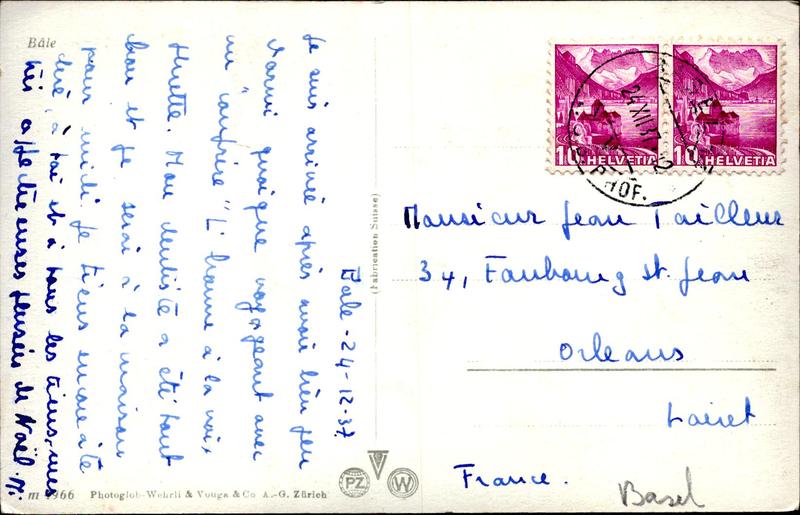 Bâle
Bale - 24-12-37.
Je suis arrivée après avoir bien peu
dormi quoique voyageant avec
un "confrère" L'homme à la voix
fluette. Mon dentiste a été tout
bon et je serai à la maison
pour midi. Je tiens encore à te
dire, à toi et à tous les tiens, mes
très affectueuses pensées de Noël.
(Fabrication Suisse)
10 HELVETIA
10 HELVETIA
24.XII.37
HOF.
Monsieur Jean Tailleur
34, Faubourg St. Jean
Orleans
Loiret
France.
Basel
Photoglob-Wehrli & Vouga & Co A.-G. Zürich
PZ
W